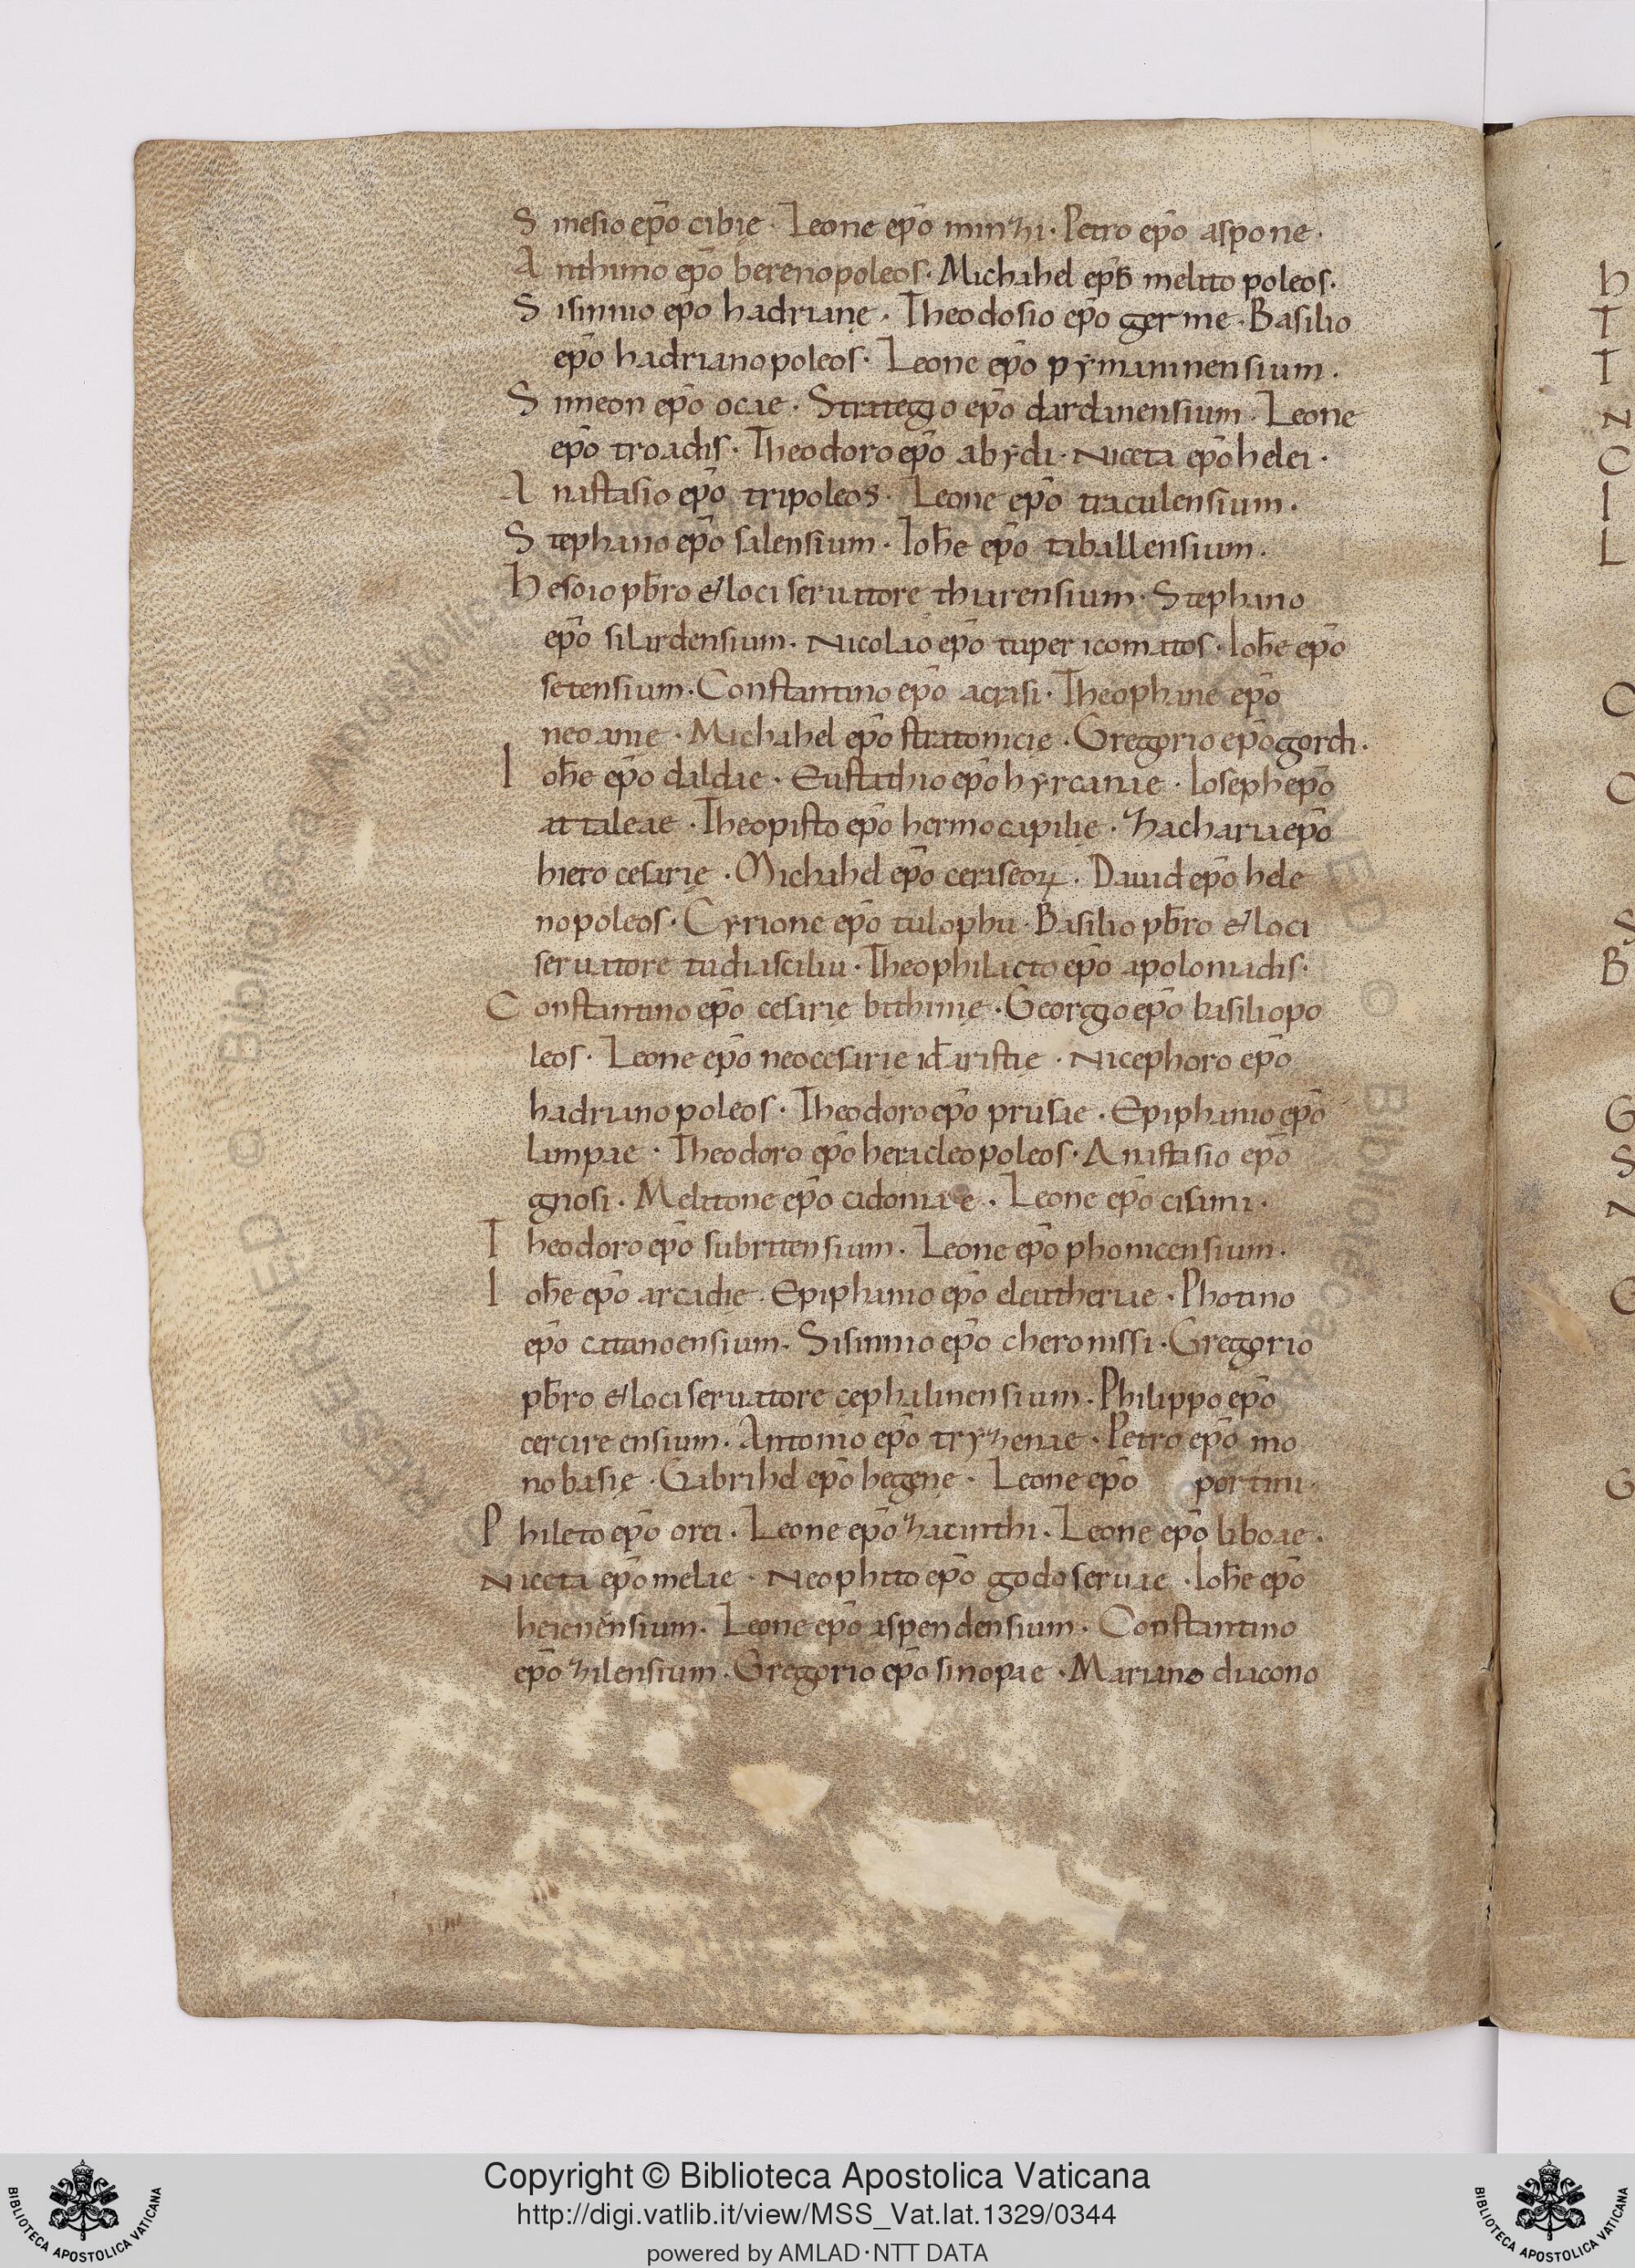 Smesio ep̄o cibię · Leone ep̄o minzhi · Petro ep̄o aspone ·
Anthimo ep̄o berenopoleos · Michahel ep̄s melito poleos ·
Sisinnio ep̄o hadrianę · Theodosio ep̄o germe · Basilio
ep̄o hadrianopoleos · Leone ep̄o pymaninensium ·
Simeon ep̄o ocae · Strategio ep̄o dardanensium · Leone
ep̄o troadis · Theodoro ep̄o abydi · Niceta ep̄o helei ·
Anastasio ep̄o tripoleos · Leone ep̄o traculensium ·
Stephano ep̄o salensium · Ioh̄e ep̄o taballensium ·
Hesoio pb̄ro & loci seruatore thiarensium · Stephano
ep̄o silardensium · Nicolao ep̄o tuper icomatos · Ioh̄e ep̄o
setensium · Constantino ep̄o acrasi · Theophane ep̄o
neoanie · Michahel ep̄o stratonicię · Gregorio ep̄o gordi ·
Ioh̄e ep̄o daldae · Eustathio ep̄o hyrcaniae · Ioseph ep̄o
attaleae · Theopisto ep̄o hermocapilię · Zacharia ep̄o
hiero cesarię · Michahel ep̄o ceraseoꝝ · Dauid ep̄o hele
nopoleos · Cyrione ep̄o tulophu · Basilio pb̄ro & loci
seruatore tudiasciliu · Theophilacto ep̄o apoloniadis ·
Constantino ep̄o cesarię bithinię · Georgio ep̄o basiliopo
leos · Leone ep̄o neocesarię id̄ aristię · Nicephoro ep̄o
hadrianopoleos · Theodoro ep̄o prusae · Epiphanio ep̄o
lampae · Theodoro ep̄o heracleopoleos · Anastasio ep̄o
gnosi · Melitone ep̄o cidoniae · Leone ep̄o cisami ·
Theodoro ep̄o subritensium · Leone ep̄o phonicensium ·
Ioh̄e ep̄o arcadię · Epiphanio ep̄o eleutheriae · Photino
ep̄o catanoensium · Sisinnio ep̄o cheronissi · Gregorio
pb̄ro & loci seruatore cephalinensium · Philippo ep̄o
cercire ensium · Antonio ep̄o tryzenae · Petro ep̄o mo
nobasię · Gabrihel ep̄o hegenę · Leone ep̄o portini ·
Phileto ep̄o orei · Leone ep̄o zacinthi · Leone ep̄o liboae ·
Niceta ep̄o melae · Neophito ep̄o godoseruae · Ioh̄e ep̄o
herenensium · Leone ep̄o aspendensium · Constantino
ep̄o zilensium · Gregorio ep̄o sinopae · Mariano diacono
Copyright © Biblioteca Apostolica Vaticana
http://digi.vatlib.it/view/MSS_Vat.lat.1329/0344
powered by AMLAD·NTT DATA
BIBLIOTECA APOSTOLICA VATICANA
BIBLIOTECA APOSTOLICA VATICANA